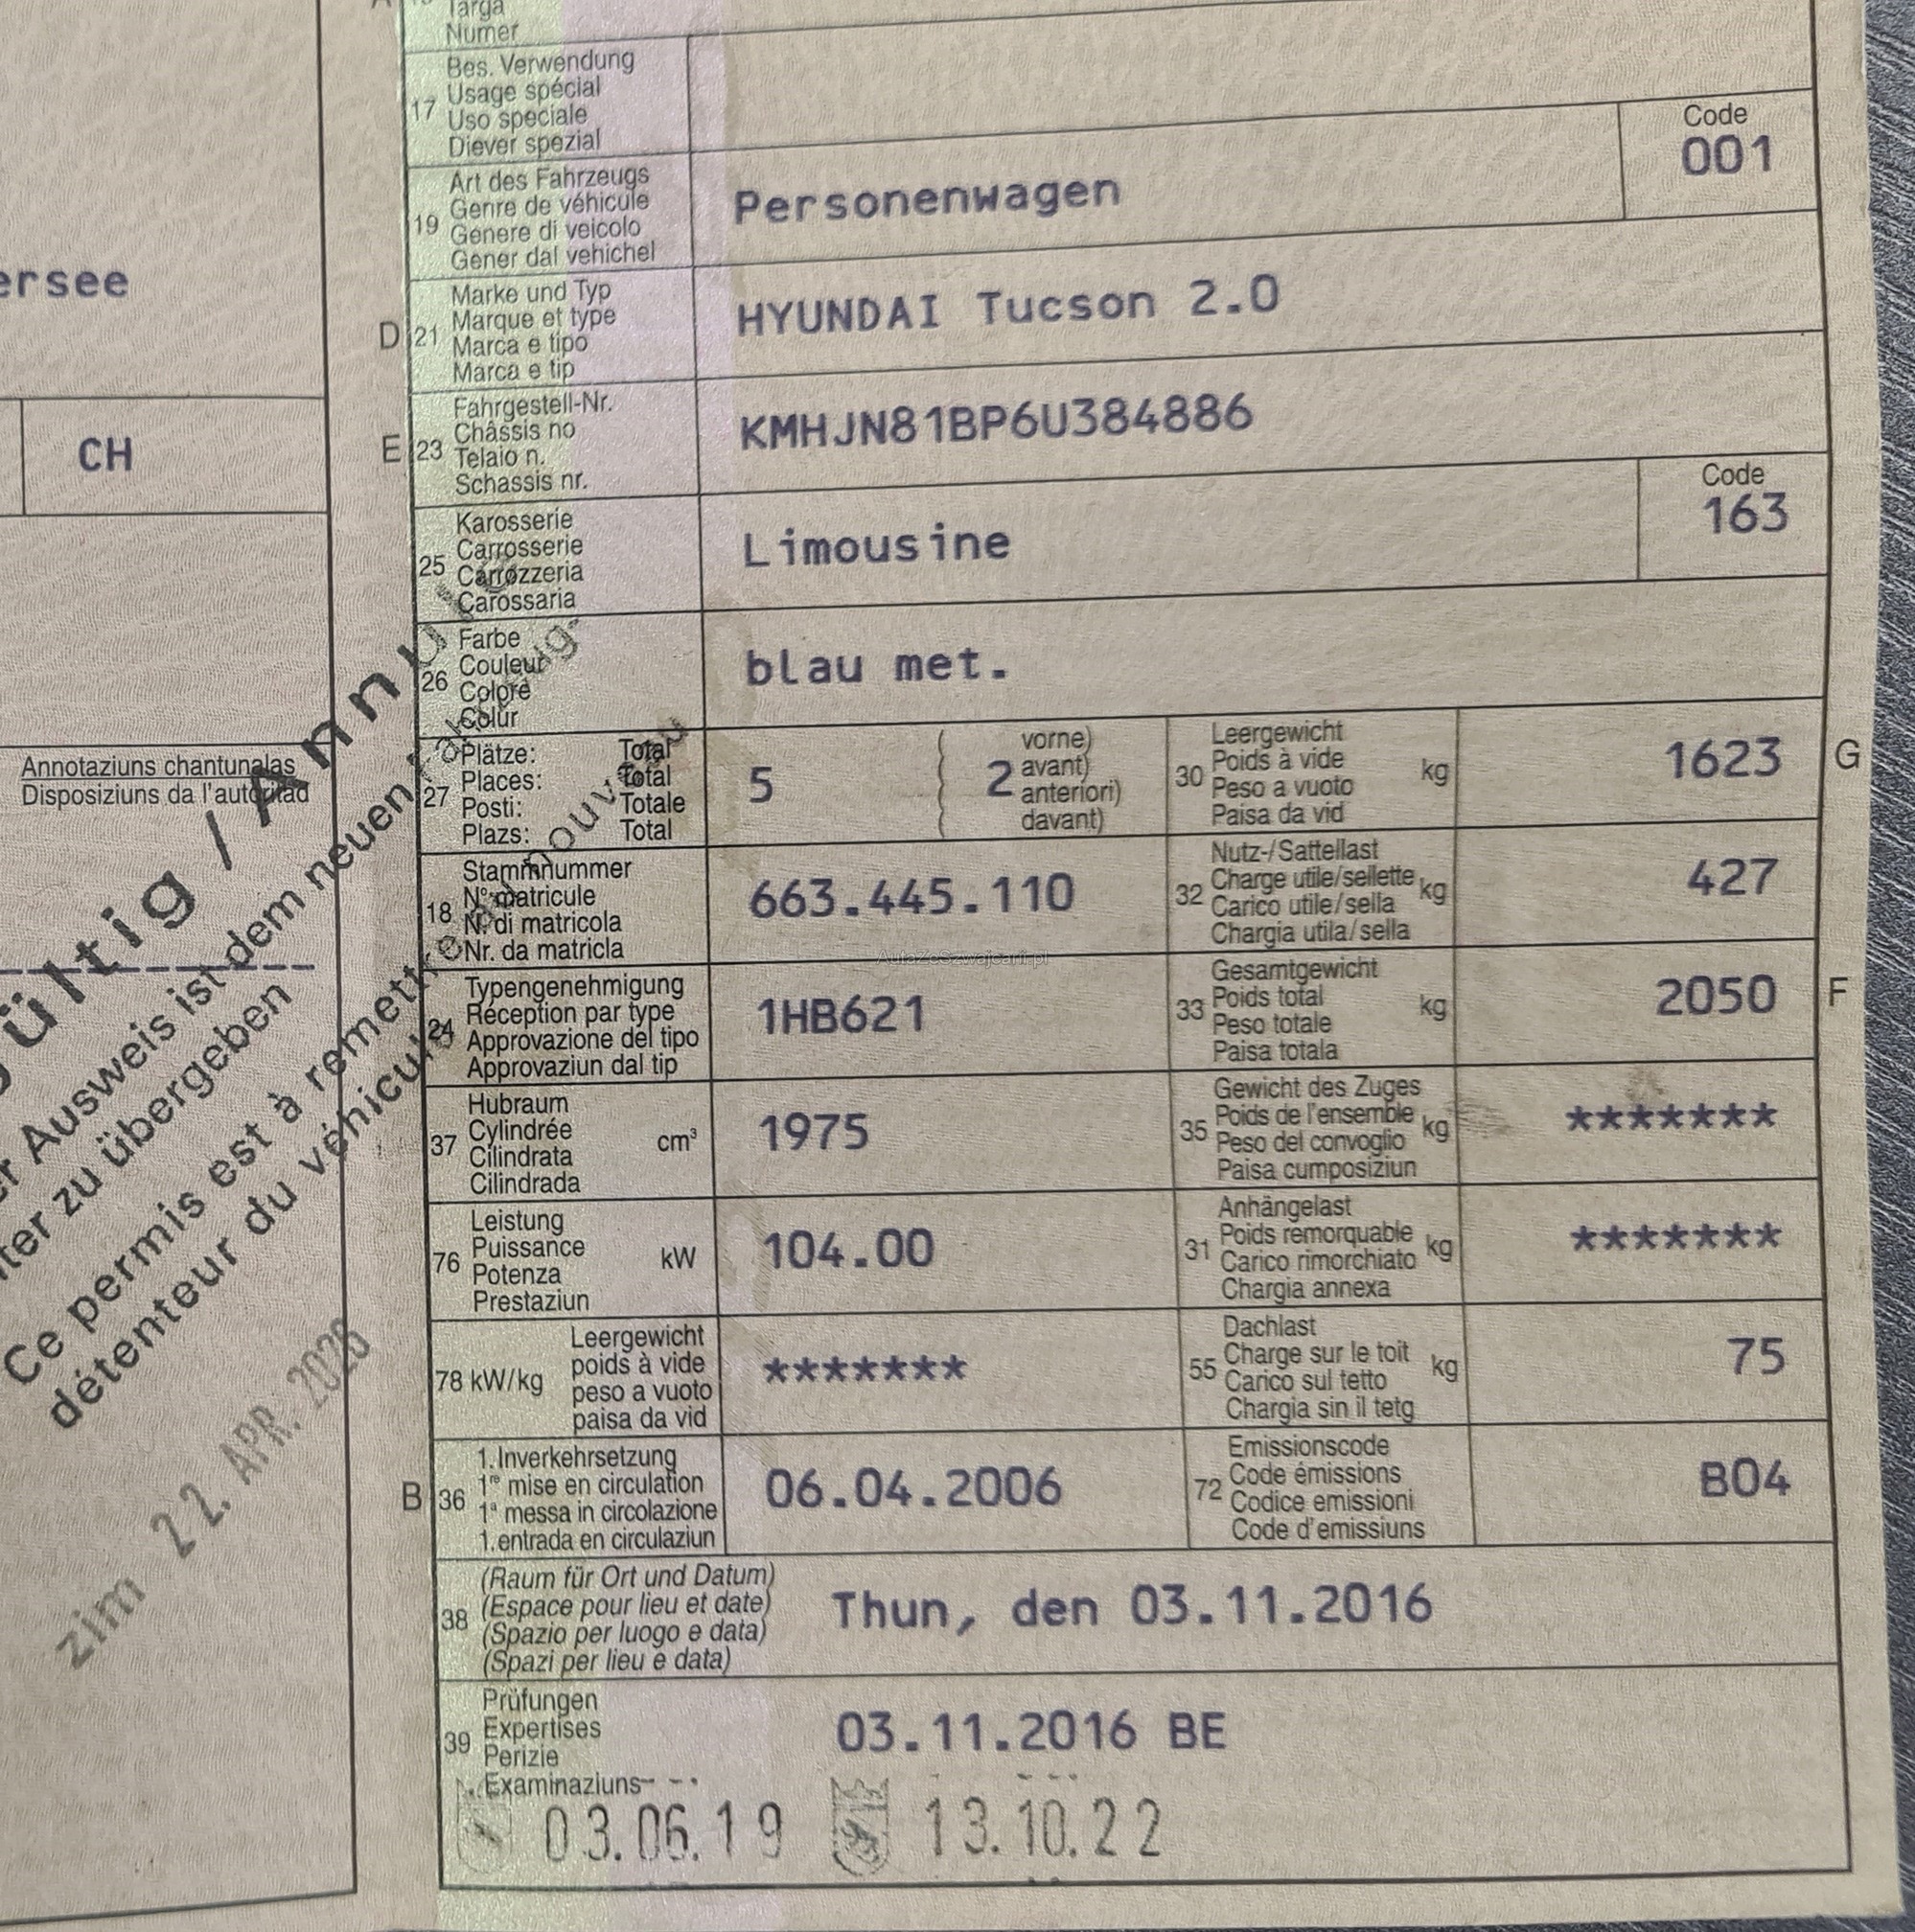 Targa
Numer
17
Bes. Verwendung
Usage spécial
Uso speciale
Diever spezial
19
Art des Fahrzeugs
Genre de véhicule
Genere di veicolo
Gener dal vehichel
Personenwagen
Code
001
D 21
Marke und Typ
Marque et type
Marca e tipo
Marca e tip
HYUNDAI Tucson 2.0
E 23
Fahrgestell-Nr.
Châssis no
Telaio n.
Schassis nr.
KMHJN81BP6U384886
25
Karosserie
Carrosserie
Carrozzeria
Carossaria
Limousine
Code
163
26
Farbe
Couleur
Colore
Colur
blau met.
27
Plätze: Total
Places: Total
Posti: Totale
Plazs: Total
5
2
vorne)
avant)
anteriori)
davant)
30
Leergewicht
Poids à vide
Peso a vuoto
Paisa da vid
kg
1623
G
18
Stammnummer
N° matricule
N. di matricola
Nr. da matricla
663.445.110
32
Nutz-/Sattellast
Charge utile/sellette
Carico utile/sella
Chargia utila/sella
kg
427
24
Typengenehmigung
Réception par type
Approvazione del tipo
Approvaziun dal tip
1HB621
33
Gesamtgewicht
Poids total
Peso totale
Paisa totala
kg
2050
F
37
Hubraum
Cylindrée
Cilindrata
Cilindrada
cm³
1975
35
Gewicht des Zuges
Poids de l'ensemble
Peso del convoglio
Paisa cumposiziun
kg
*******
76
Leistung
Puissance
Potenza
Prestaziun
kW
104.00
31
Anhängelast
Poids remorquable
Carico rimorchiato
Chargia annexa
kg
*******
78 kW/kg
Leergewicht
poids à vide
peso a vuoto
paisa da vid
*******
55
Dachlast
Charge sur le toit
Carico sul tetto
Chargia sin il tetg
kg
75
B 36
1. Inverkehrsetzung
1re mise en circulation
1a messa in circolazione
1. entrada en circulaziun
06.04.2006
72
Emissionscode
Code émissions
Codice emissioni
Code d'emissiuns
B04
38
(Raum für Ort und Datum)
(Espace pour lieu et date)
(Spazio per luogo e data)
(Spazi per lieu e data)
Thun, den 03.11.2016
39
Prüfungen
Expertises
Perizie
Examinaziuns
03.11.2016 BE
03.06.19
13.10.22
ersee
CH
Annotaziuns chantunalas
Disposiziuns da l'autoritad
Ausweis ist dem neuen
zu übergeben
Ce permis est à remettre
nouveau
détenteur du véhicule
22. APR. 2026
zim
AutaZeSzwajcarii.pl